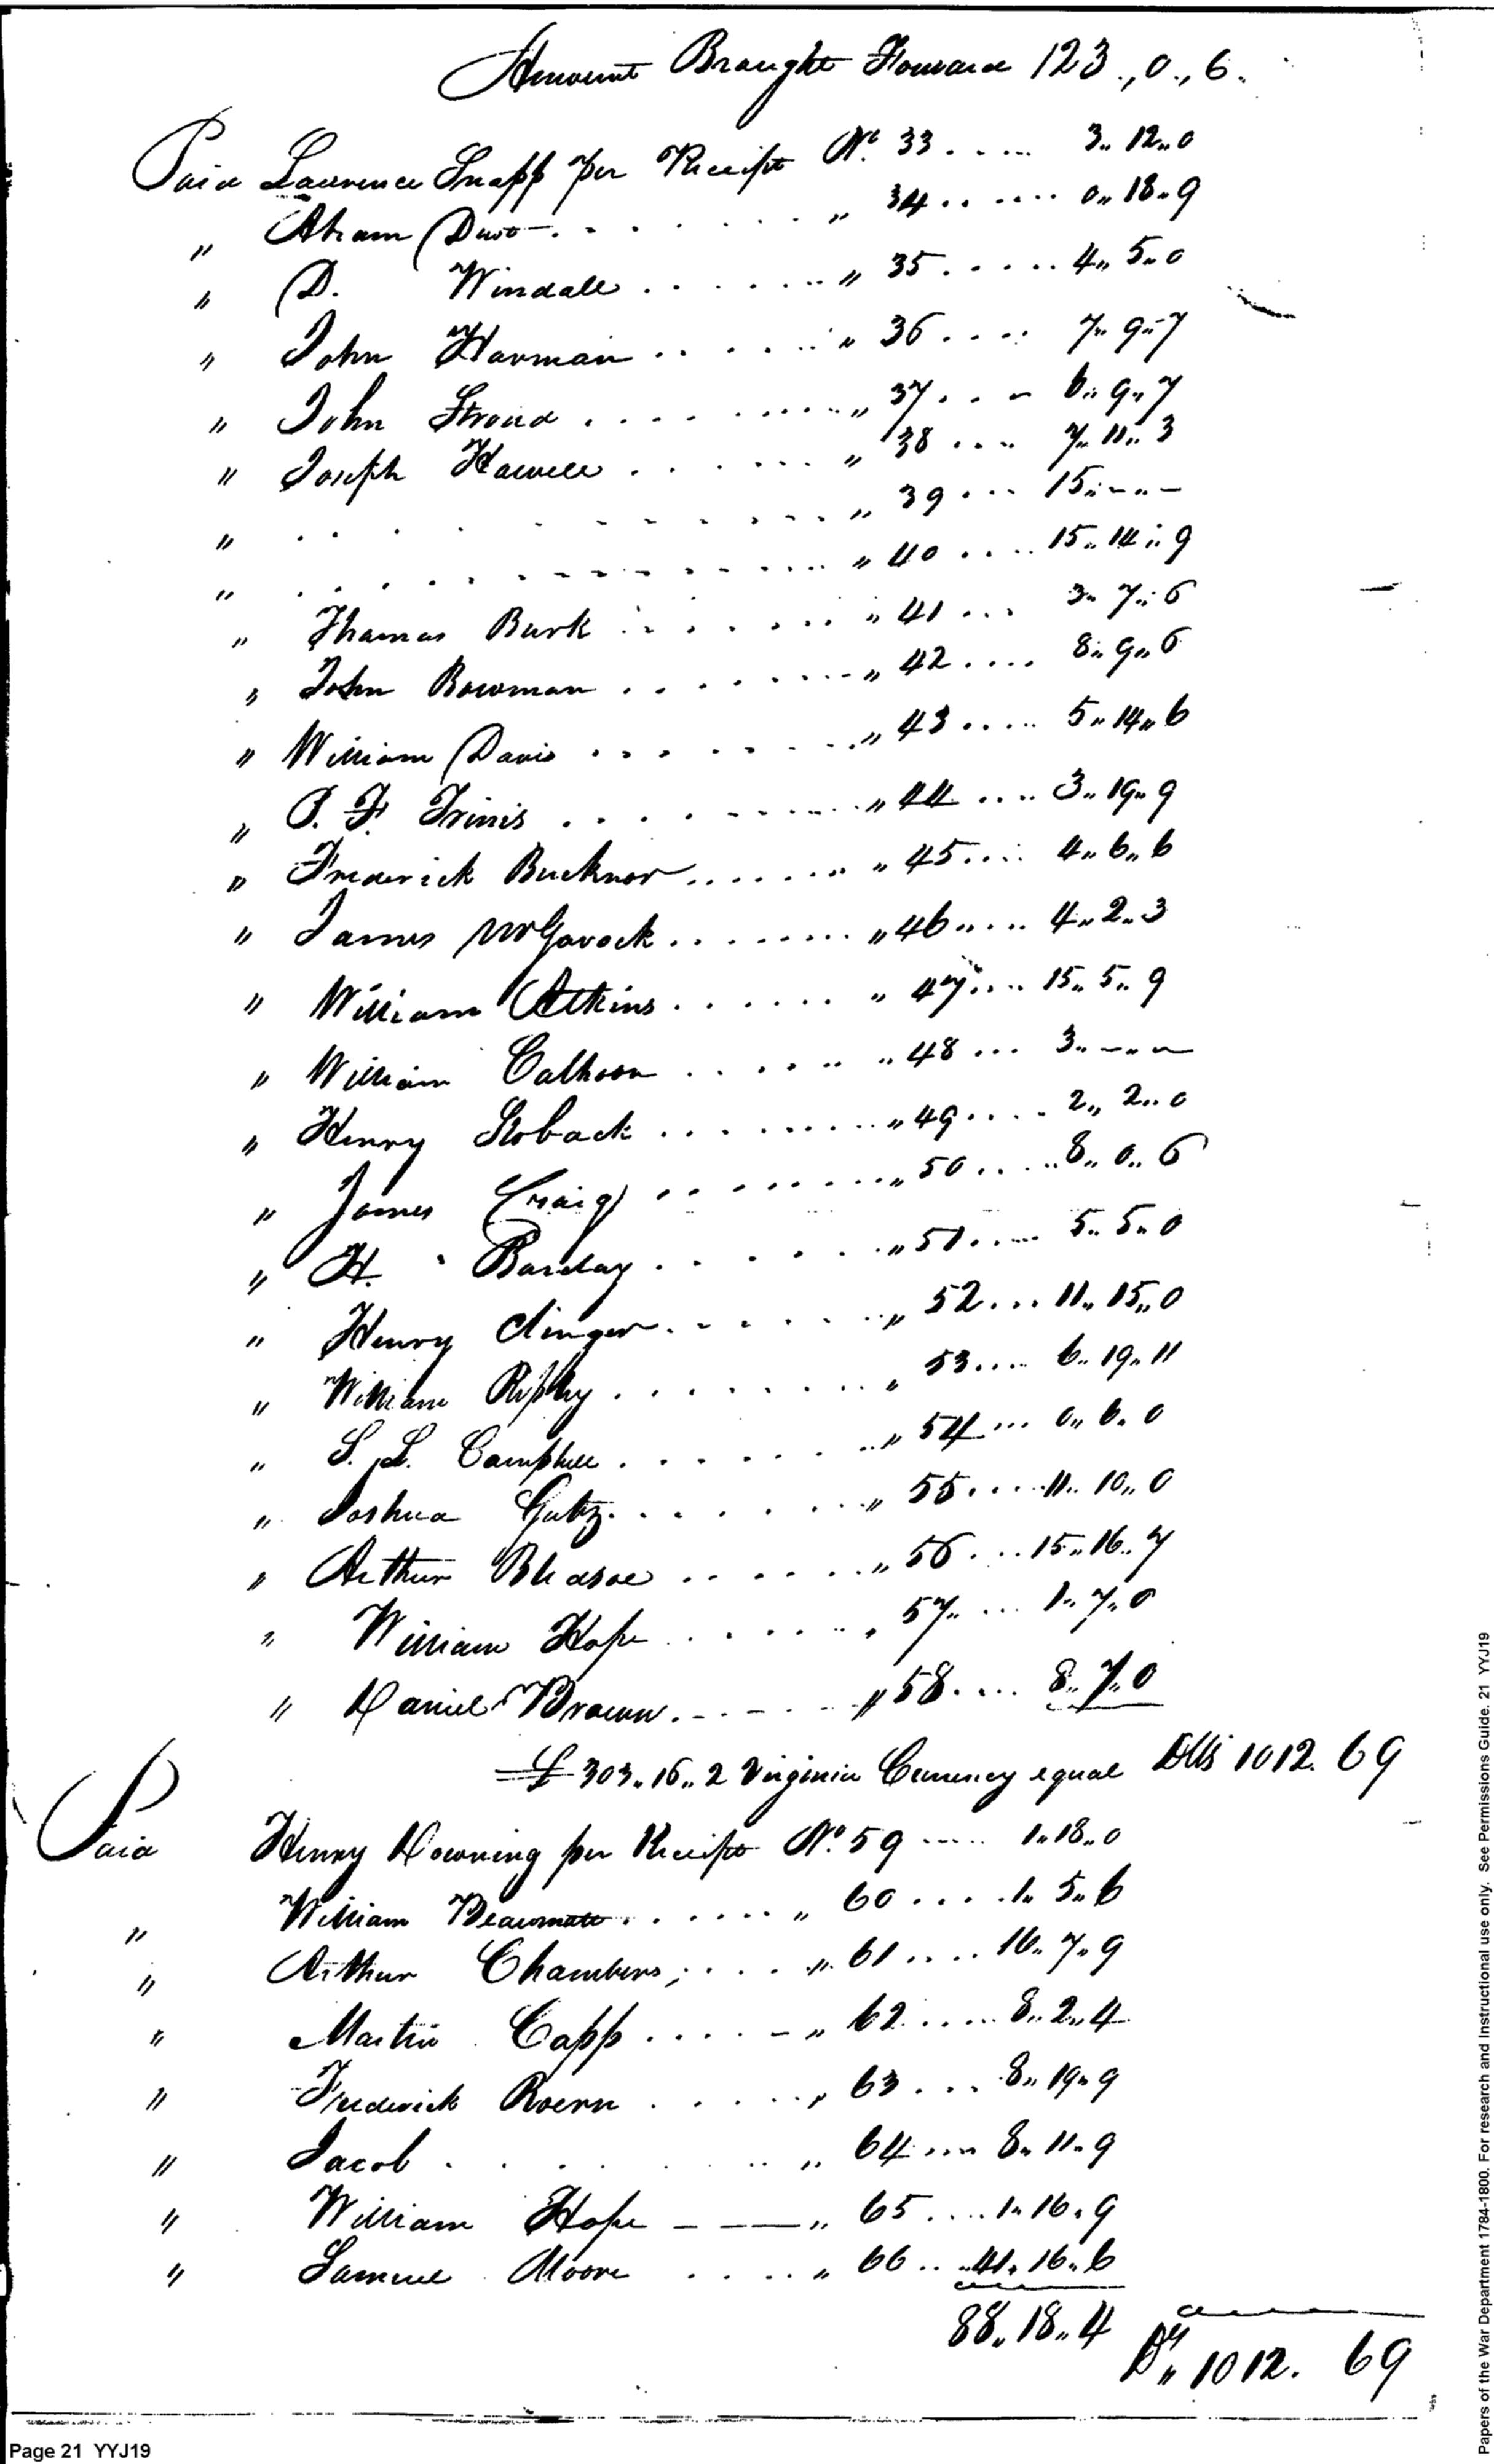 Amount Brought Forward 123.,0.,6.
Paid Lawrence Snapp per Receipt No. 33 .... 3.. 12..0
" Abram Duvo . . . . . . . " 34 ...... 0.. 18..9
" D. Windall . . . . . . . " 35 ..... 4.. 5..0
" John Harman . . . . . . " 36 .... 7.. 9..7
" John Stroud . . . . . . . . " 37 . . - 6.. 9..7
" Joseph Howell . . . . . . . " 38 .... 7.. 11.. 3
" . . . . . . . . . . . . " 39 ... 15..-..-
" . . . . . . . . . . . . " 40 .... 15.. 14..9
" Thomas Burk . . . . . . . " 41 ... 3.. 7..6
" John Bowman . . . . . . . " 42 .... 8.. 9..6
" William Davis . . . . . . . " 43 ..... 5.. 14..6
" Frinis . . . . . . . . " 44 .... 3.. 19..9
" Frederick Bucknor ....... " 45 .... 4.. 6..6
" James McGavock ........ " 46 ..... 4.. 2..3
" William Atkins . . . . . . . " 47 .... 15.. 5..9
" William Calhoon . . . . . . " 48 ... 3..-..-
" Henry Stoback ......... " 49 .... 2.. 2..0
" James Craig . . . . . . . . " 50 ..... 8.. 0..6
" H. Barclay . . . . . . . " 51 ..... 5.. 5..0
" Henry Clinger . . . . . . . " 52 ... 11.. 15..0
" William Ripley . . . . . . . . " 53 .... 6.. 19..11
" S. L. Campbell . . . . . . . . " 54 ... 0.. 6..0
" Joshua Gutz . . . . . . . . " 55 .... 11.. 10..0
" Arthur Bledsoe . . . . . . . " 56 ... 15.. 16..7
" William Hope . . . . . . . " 57 ... 1.. 7..0
" Daniel Brown . - - - - - " 58 .... 8.. 7..0
£ 303..16..2 Virginia Currency equal Dlls 1012. 69
Paid Henry Downing per Receipt No. 59 ..... 1..18..0
" William . . . . . . . " 60 .... 1.. 5..6
" Arthur Chambers; . . . . " 61 .... 16.. 7..9
" Martin Capp . . . . - " 62 ..... 8.. 2..4
" Frederick . . . . . . " 63 ... 8.. 19..9
" Jacob . . . . . . . . " 64 .... 8.. 11..9
" William Hope - - — " 65 .... 1..16..9
" Samuel Moore . . . . " 66 .. 41.. 16..6
88..18..4
Ds" 1012. 69
Page 21 YYJ19
Papers of the War Department 1784-1800. For research and Instructional use only. See Permissions Guide. 21 YYJ19